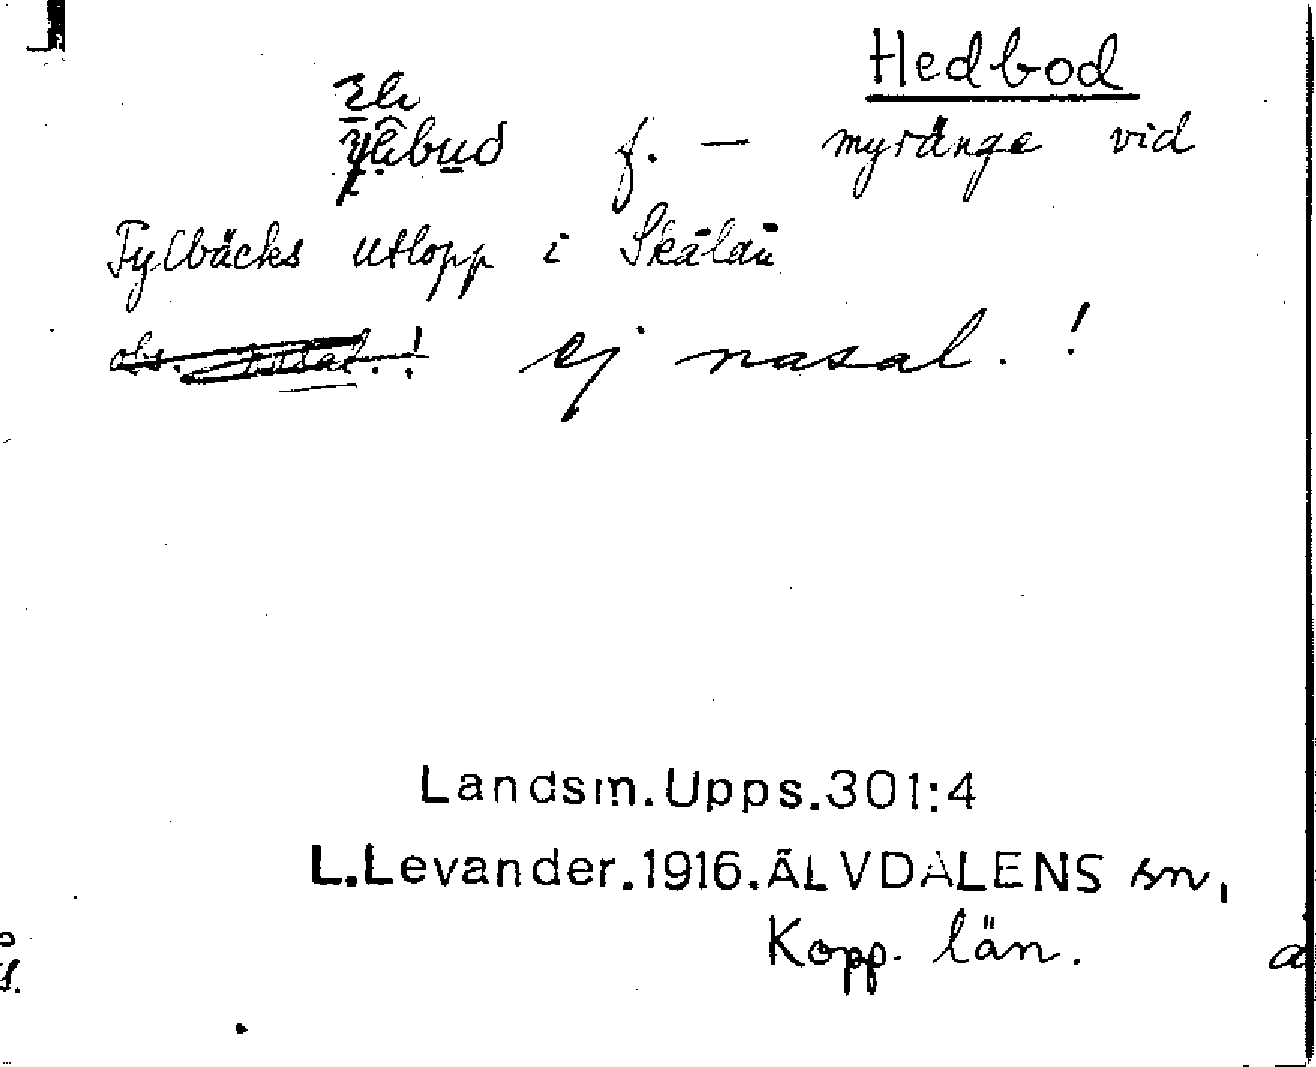 Hedbod
f. — myränge vid
Fylbäcks utlopp i Skålån
ej nasal. !
Landsm.Upps.301:4
L.Levander.1916.ÄLVDALENS sn,
Kopp. län.